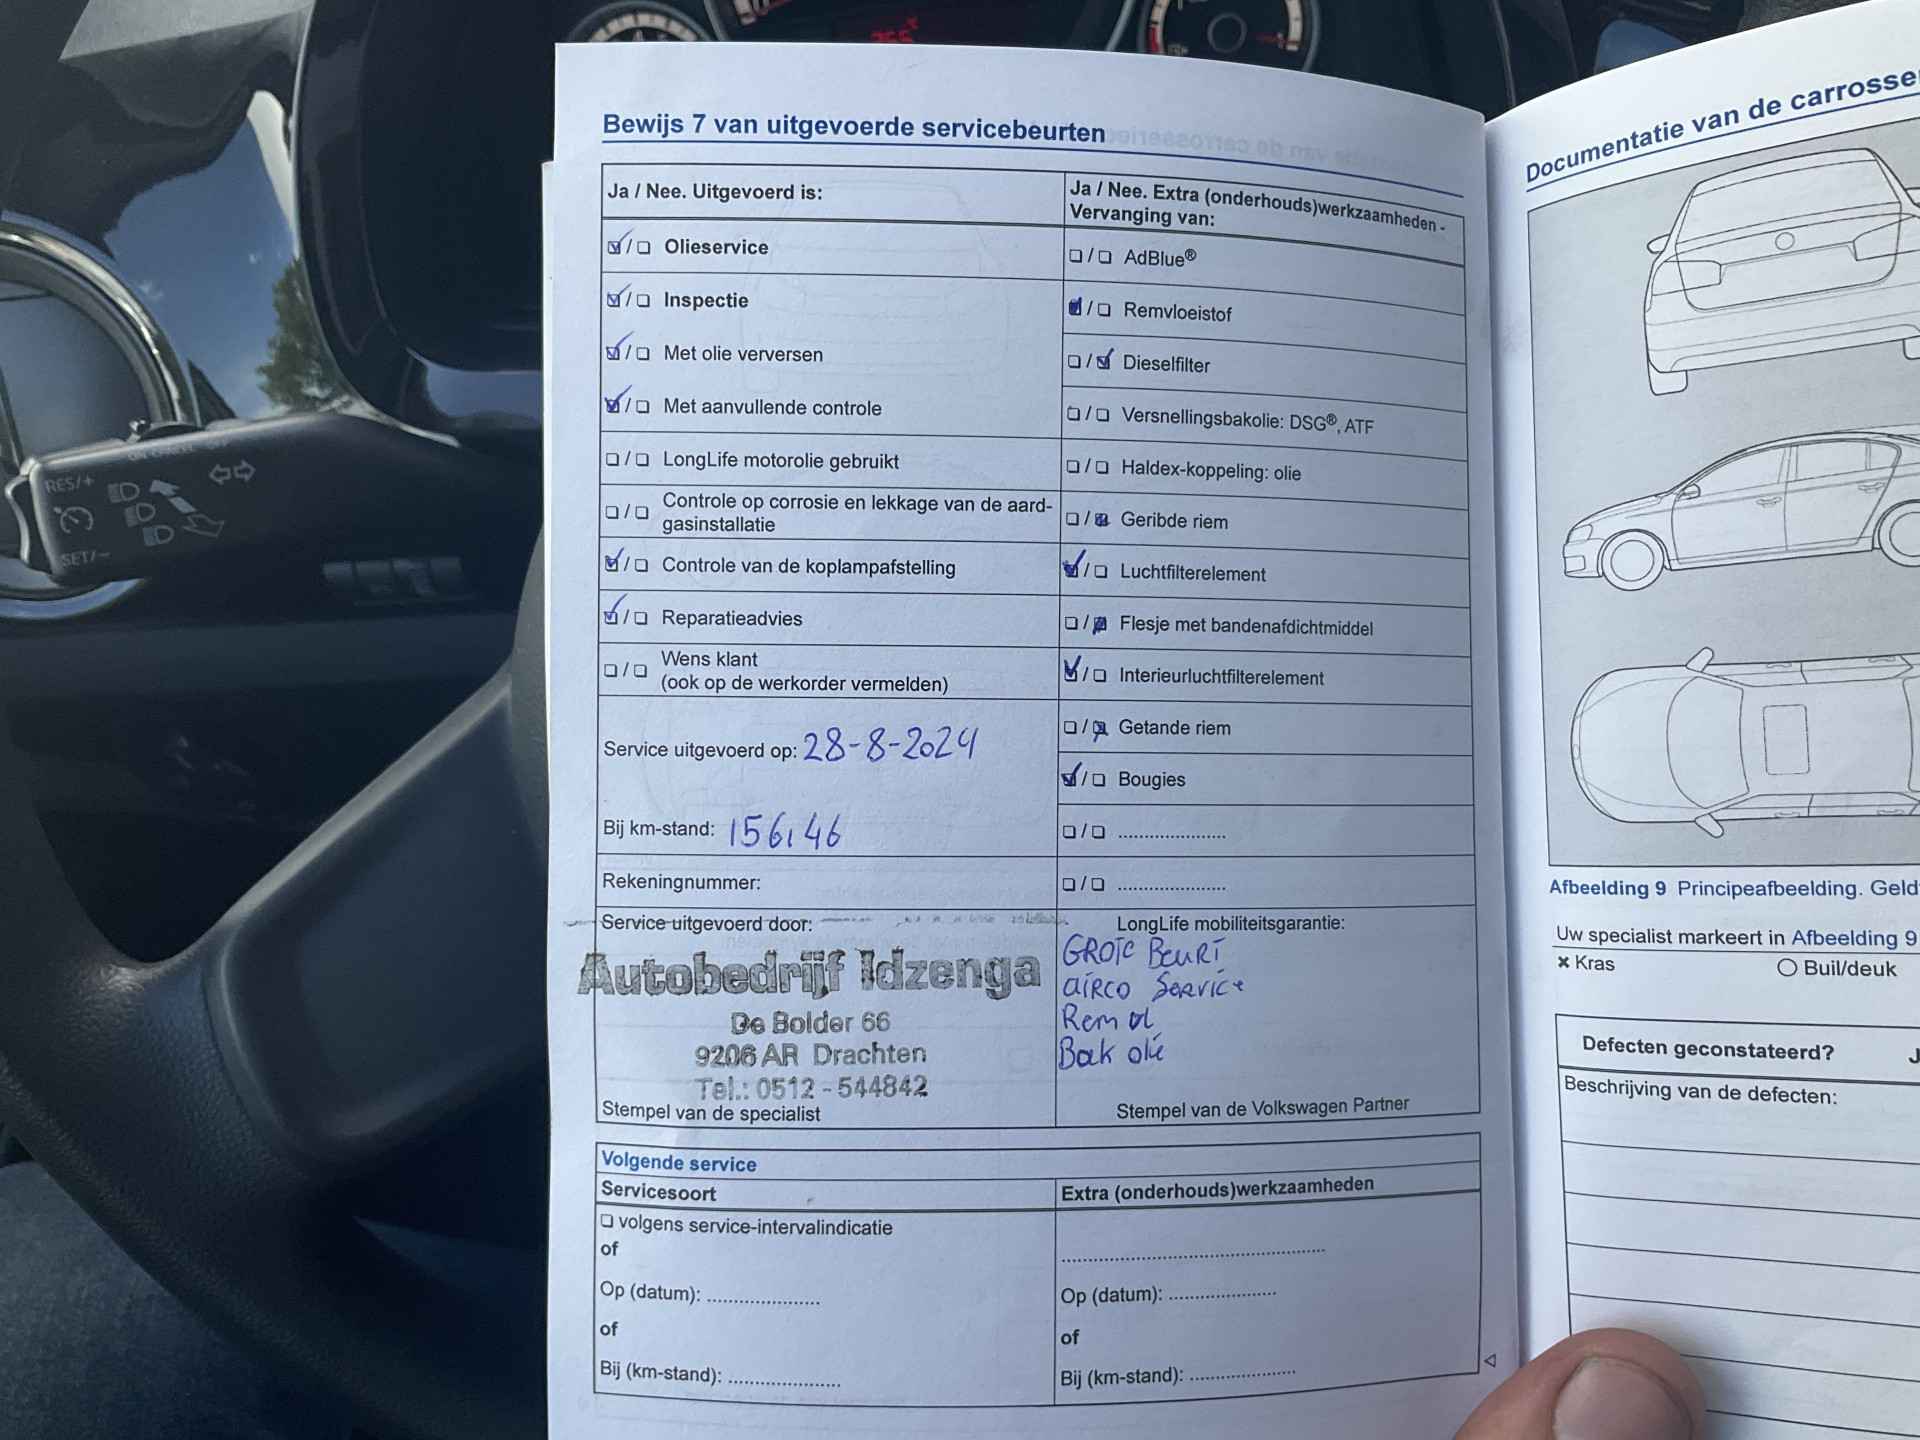 Bewijs 7 van uitgevoerde servicebeurten
Ja / Nee. Uitgevoerd is:
Olieservice
Inspectie
Met olie verversen
Met aanvullende controle
LongLife motorolie gebruikt
Controle op corrosie en lekkage van de aard-
gasinstallatie
Controle van de koplampafstelling
Reparatieadvies
Wens klant
(ook op de werkorder vermelden)
Service uitgevoerd op: 28-8-2024
Bij km-stand: 156.146
Rekeningnummer:
Service uitgevoerd door:
Autobedrijf Idzenga
De Bolder 66
9206 AR Drachten
Tel.: 0512 - 544842
Stempel van de specialist
Ja / Nee. Extra (onderhouds)werkzaamheden -
Vervanging van:
AdBlue®
Remvloeistof
Dieselfilter
Versnellingsbakolie: DSG®, ATF
Haldex-koppeling: olie
Geribde riem
Luchtfilterelement
Flesje met bandenafdichtmiddel
Interieurluchtfilterelement
Getande riem
Bougies
LongLife mobiliteitsgarantie:
GROTE BEURT
AIRCO SERVICE
Rem ol
Bak olie
Stempel van de Volkswagen Partner
Volgende service
Servicesoort
volgens service-intervalindicatie
of
Op (datum):
of
Bij (km-stand):
Extra (onderhouds)werkzaamheden
Op (datum):
of
Bij (km-stand):
Documentatie van de carrosse
Afbeelding 9 Principeafbeelding. Geld
Uw specialist markeert in Afbeelding 9
Kras
Buil/deuk
Defecten geconstateerd? J
Beschrijving van de defecten:
RES/+
SET/-